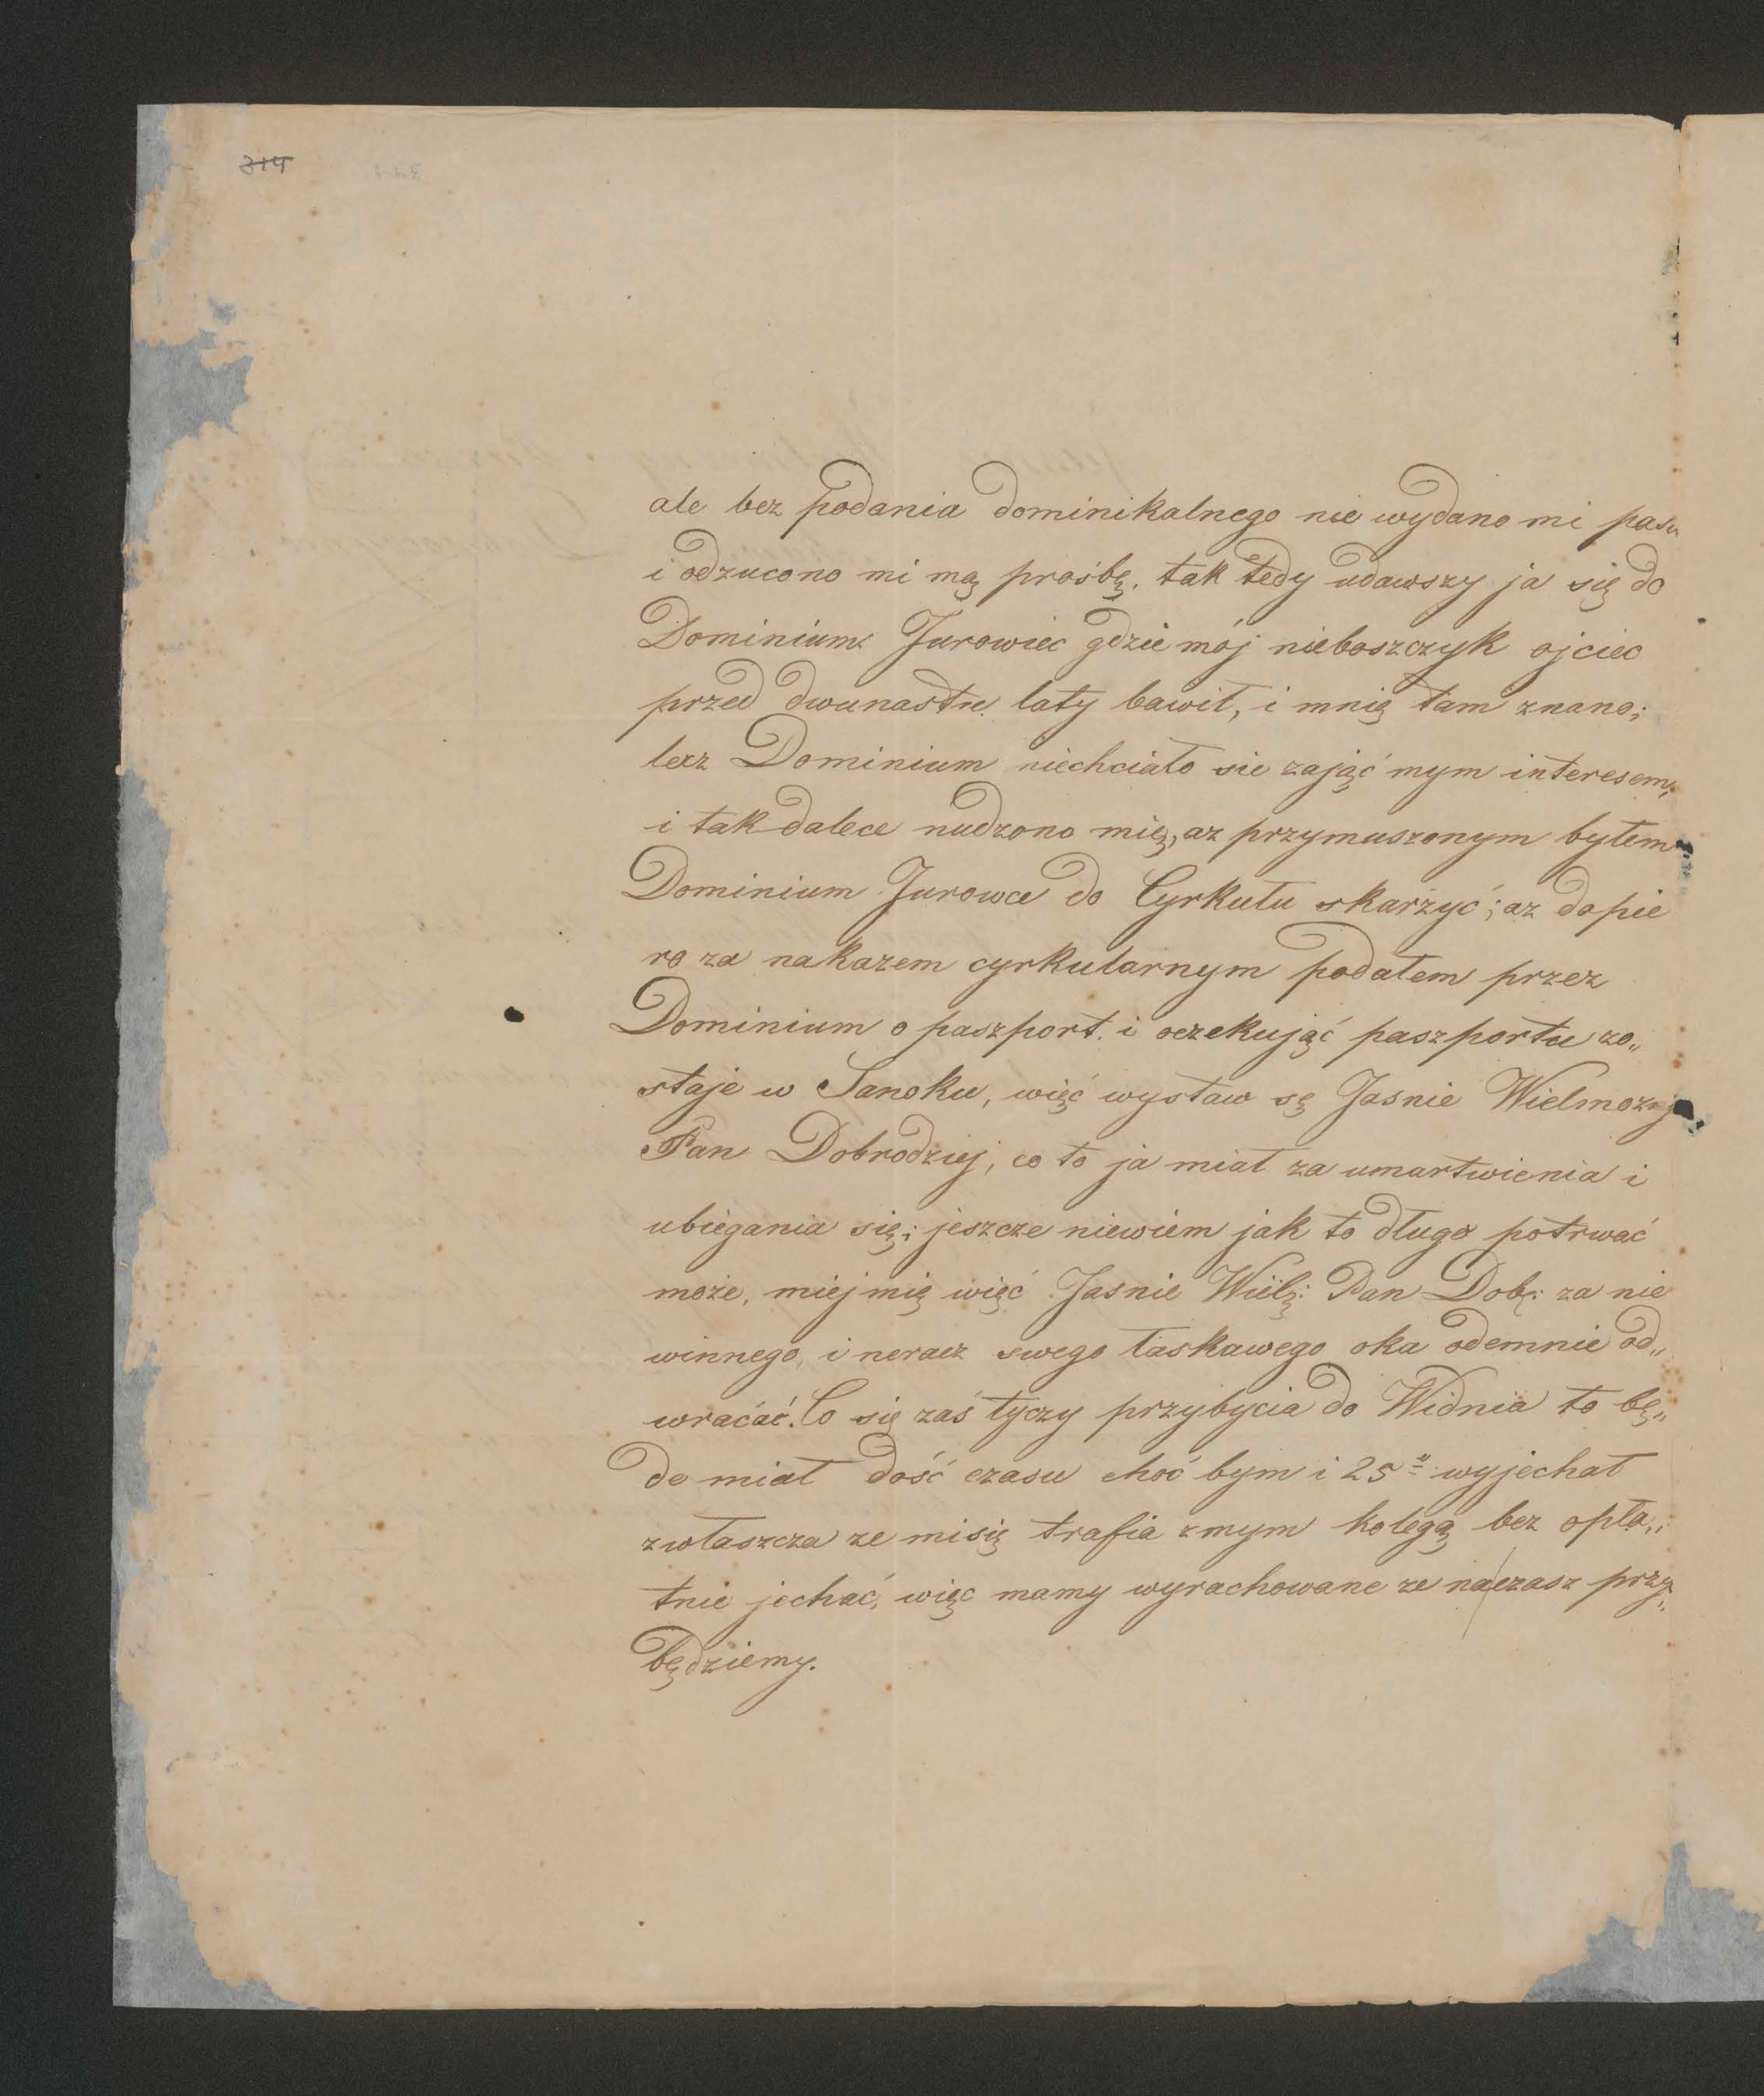 314
ale bez podania dominikalnego nie wydano mi pasu
i odzucono mi mą prośbę. tak tedy udawszy ja się do
Dominium Jurowiec gdzie mój nieboszczyk ojciec
przed dwunastu laty bawił, i mnię tam znano;
lecz Dominium niechciało sie zająć mym interesem,
i tak dalece nudzono mię, az przymuszonym byłem
Dominium Jurowce do Cyrkułu skarżyć; az dopie
ro za nakazem cyrkularnym podałem przez
Dominium o paszport. i oczekująć paszportu zo„
staje w Sanoku, więć wystaw sę Jasnie Wielmozny
Pan Dobrodziej, co to ja miał za umartwienia i
ubiegania się; jeszcze niewiem jak to długo potrwać
może, miej mię więć Jasnie Wielż: Pan Dob: za nie
winnego, i neracz swego łaskawego oka odemnie od„
wraćać. Co się zaś tyczy przybycia do Widnia to bę„
de miał dość czasu choć bym i 25 wyjechał
zwłaszcza ze misię trafia zmym kolegą bez opła„
tnie jechać, więc mamy wyrachowane ze na czasz przy„
będziemy.